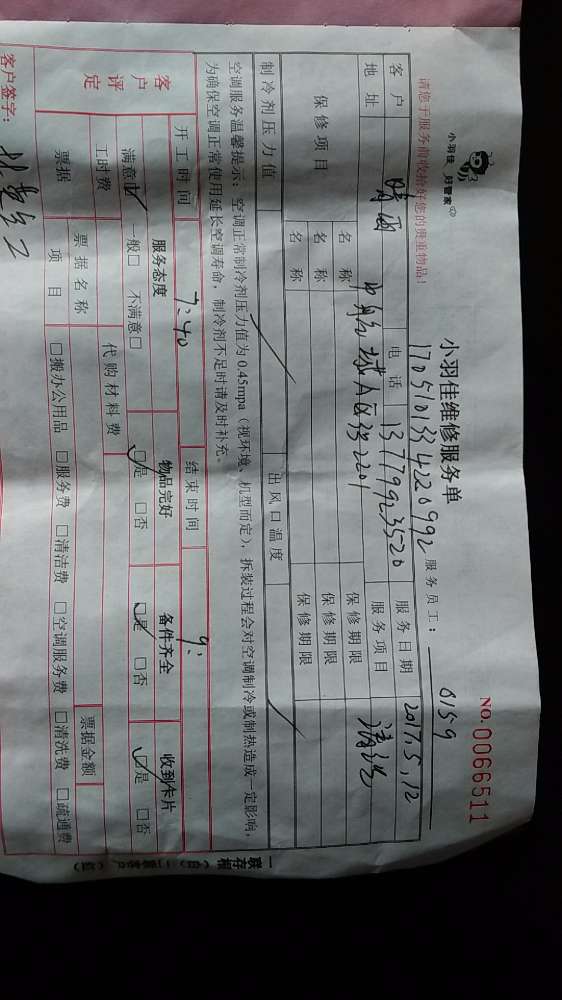 小羽佳 好管家
小羽佳维修服务单
NO. 0066511
1705101334220992 服务员工： 0159
请您于服务前收拾好您的贵重物品！
客户 电话 13779923520 服务日期 2017.5.12
地址 服务项目 清洗
保修项目 名称 保修期限
名称 保修期限
名称 保修期限
制冷剂压力值 出风口温度
空调服务温馨提示：空调正常制冷剂压力值为0.45mpa（视环境、机型而定），拆装过程会对空调制冷或制热造成一定影响，
为确保空调正常使用延长空调寿命，制冷剂不足时请及时补充。
开工时间 7:40 结束时间 9:
客户评定 服务态度 物品完好 备件齐全 收到卡片
满意☑ 一般□ 不满意□ ☑是 □否 ☑是 □否 ☑是 □否
工时费 代购材料费
票据 票据名称 票据金额
项目 □搬办公用品 □服务费 □清洁费 □空调服务费 □清洗费 □疏通费
客户签字：